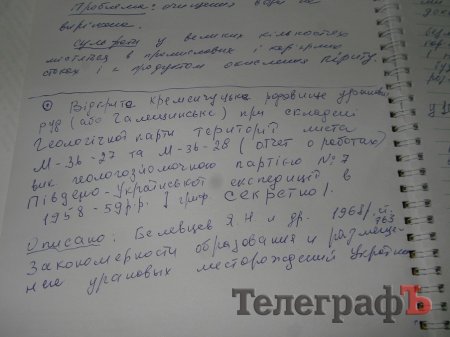 Проблема: очищення вод не
вирішена.
Сульфати у великих кількостях
містяться в промислових і кар'єрних
стоках і є продуктом окислення піриту.
Відкрито Кременчуцьке родовище уранових
руд (або Галещинське) при складені
Геологічної карти території листа
М-36-27 та М-36-28 (отчет о работах)
вик. геологозйомочною партією №7
Південо-Української експедиції в
1958-59 р.р. гриф. секретно!
Описано: Белевцев Я.Н и др. 1968г.
Закономерности образования и размеще-
ния урановых месторождений Украины
ТелеграфЪ